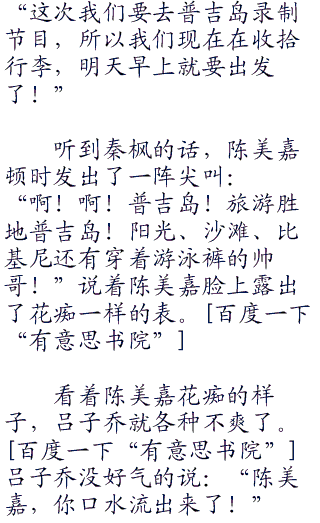 “这次我们要去普吉岛录制
节目，所以我们现在在收拾
行李，明天早上就要出发
了！”
听到秦枫的话，陈美嘉
顿时发出了一阵尖叫：
“啊！啊！普吉岛！旅游胜
地普吉岛！阳光、沙滩、比
基尼还有穿着游泳裤的帅
哥！”说着陈美嘉脸上露出
了花痴一样的表。[百度一下
“有意思书院”]
看着陈美嘉花痴的样
子，吕子乔就各种不爽了。
[百度一下“有意思书院”]
吕子乔没好气的说：“陈美
嘉，你口水流出来了！”